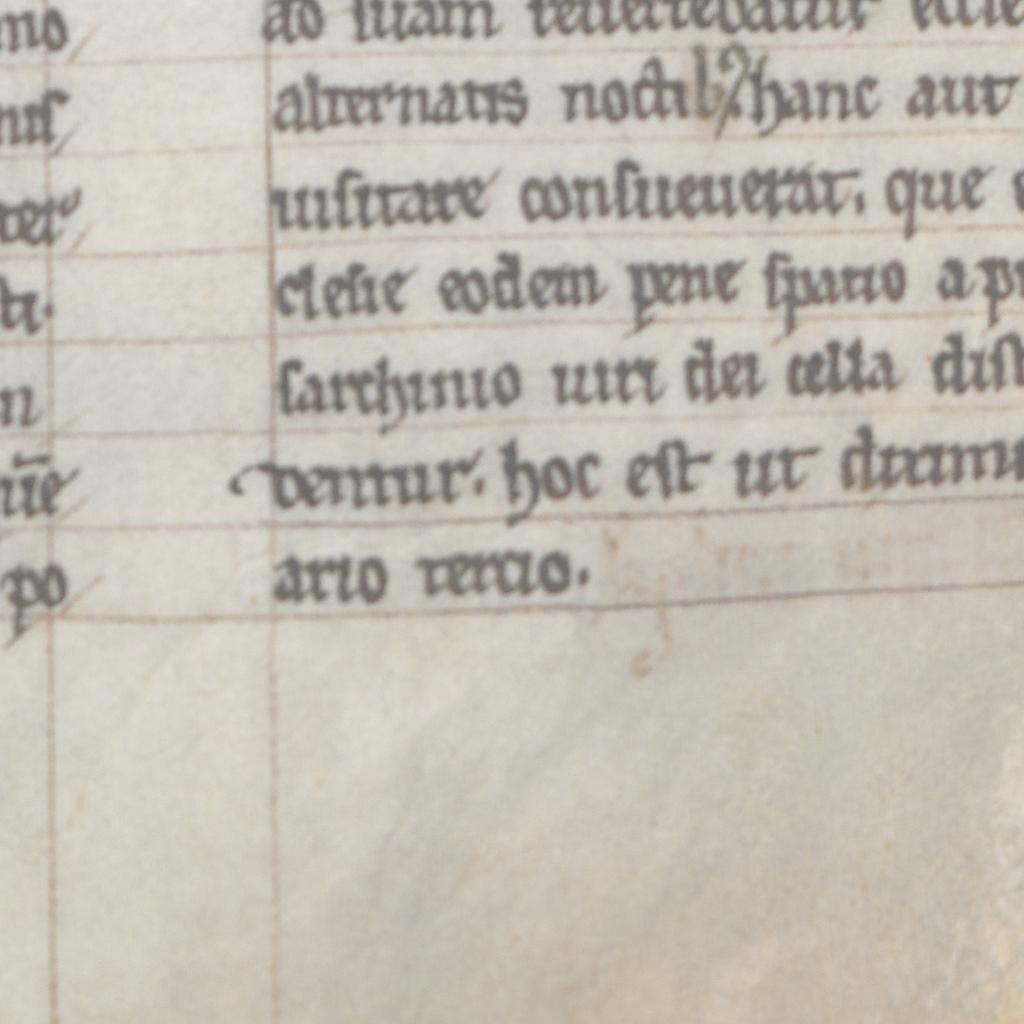 mo
nis
ter
sti.
n
nīe
po
ad suam reuertebatur eccle
alternatis noctib; hanc aut
uisitare consueuerat. que e
clesie eodem pene spatio a pr
sarchinio uiri dei cella dist
dentur. hoc est ut diximu
ario tercio.